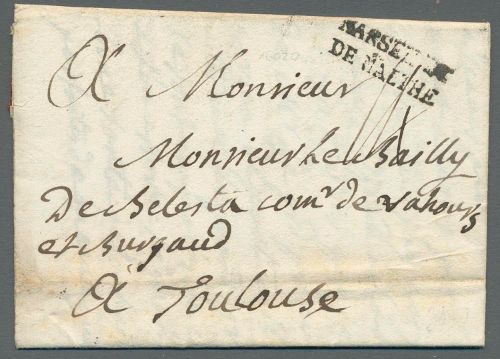 MARSEILLE
DE MALTHE
A Monsieur
Monsieur Le Bailly
De Belesta com.r de rahours
et Burgaud
A Toulouse